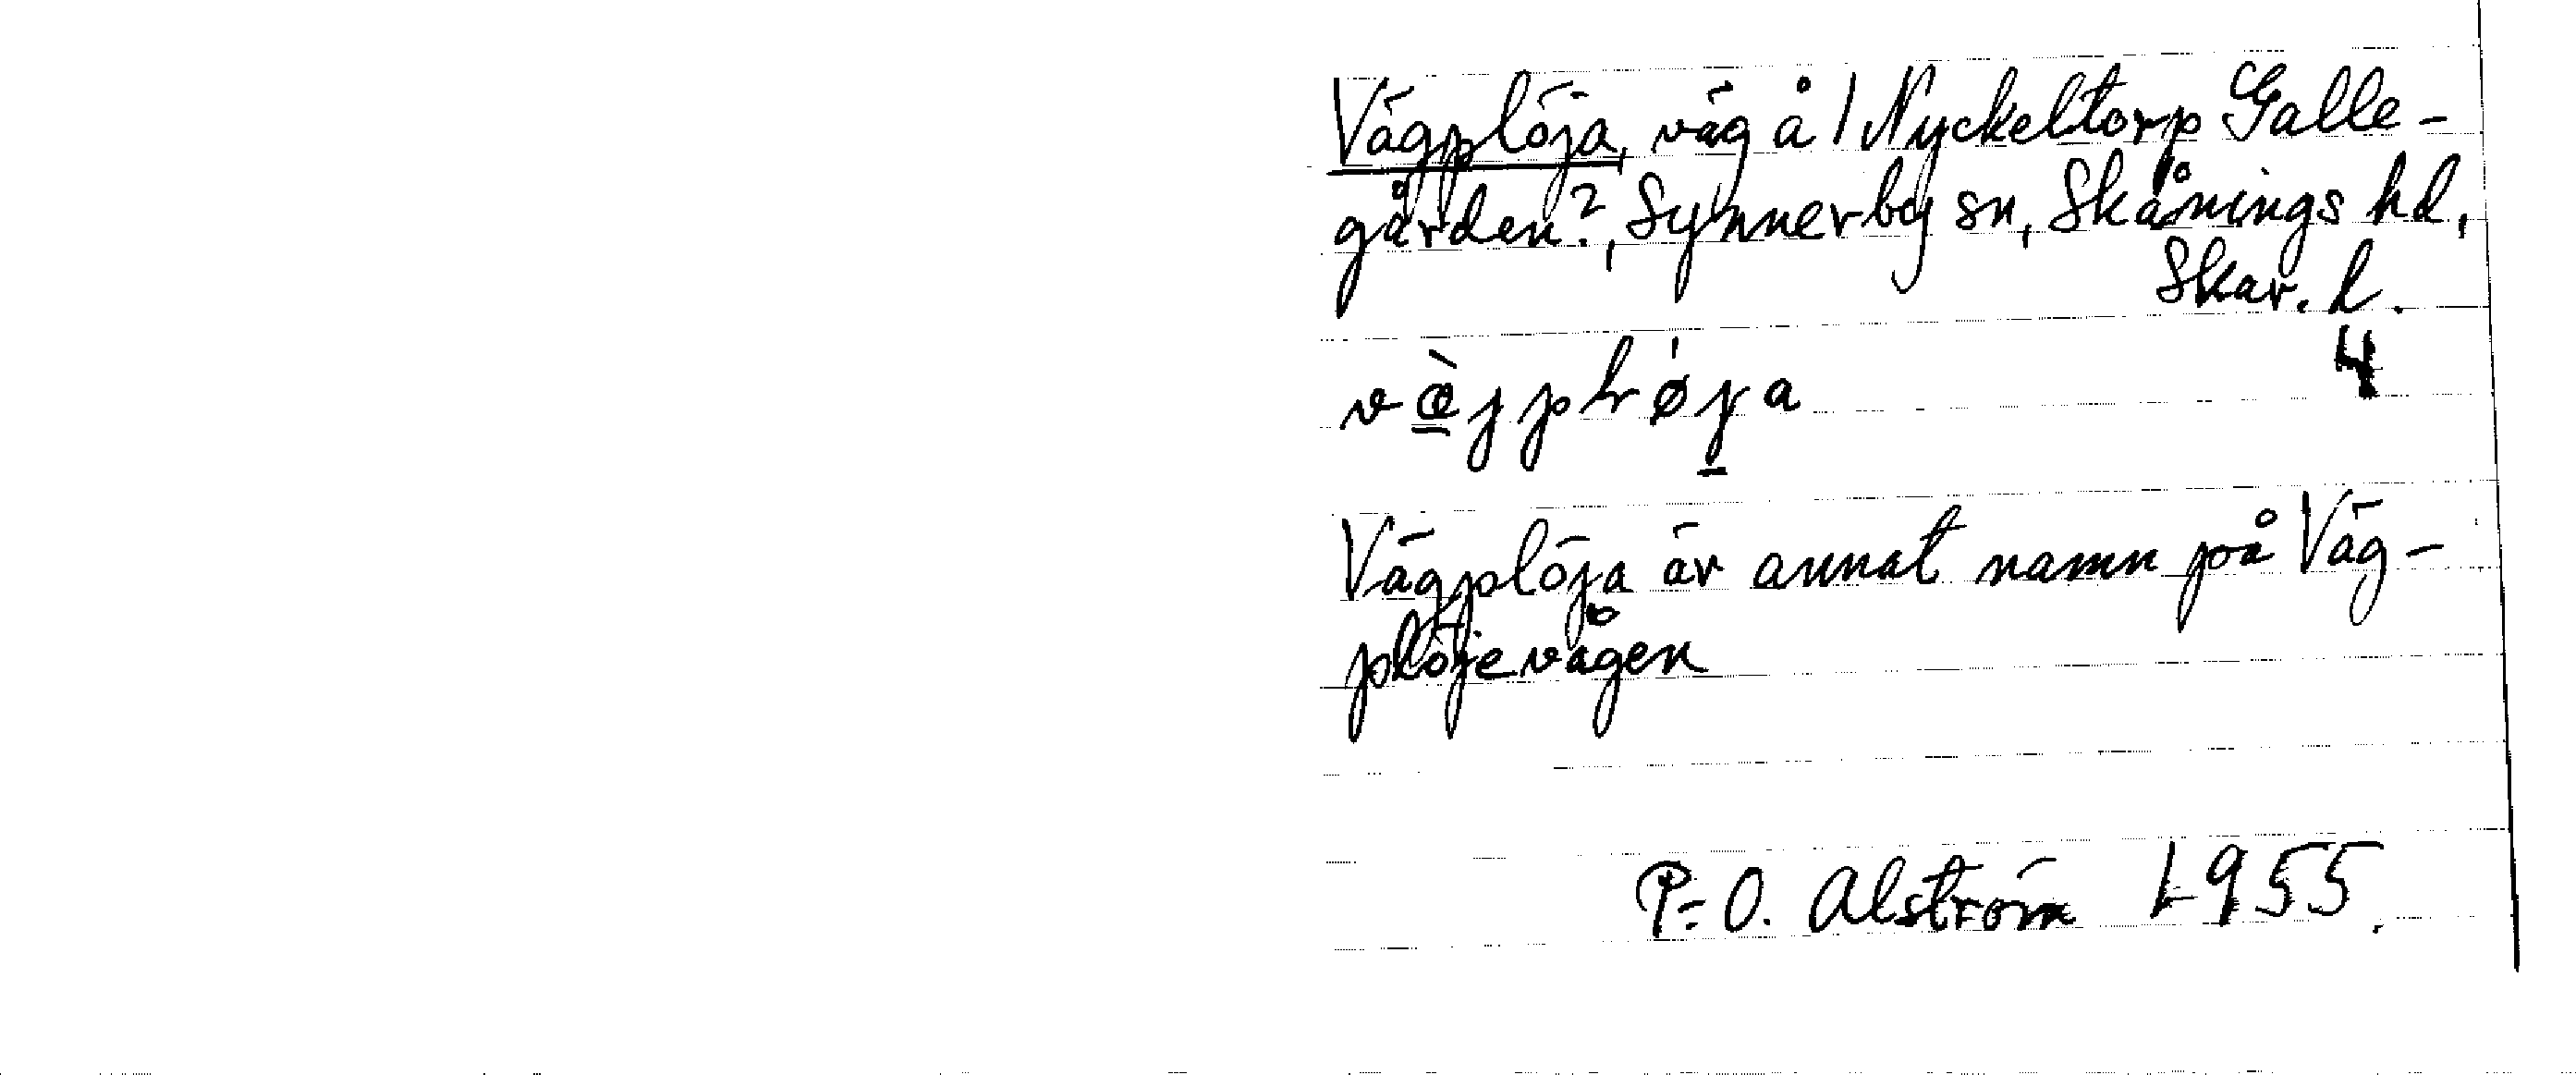 Vägplöja, väg å 1 Nyckeltorp Galle-
gården?, Synnerby sn, Skånings hd,
Skar. l.
4
Vägplöja är annat namn på Väg-
plöjevägen
P-O. Alström 1955.